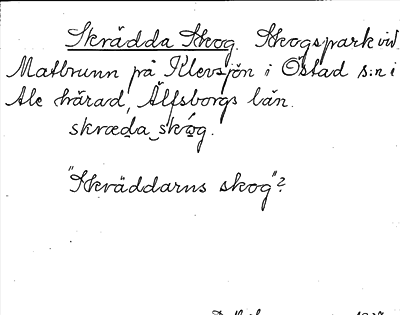 Skrädda Skog. Skogspark vid
Matbrunn på Klevsjön i Östad s:n i
Ale härad, Älfsborgs län.
skræda skóg.
"Skräddarns skog"?